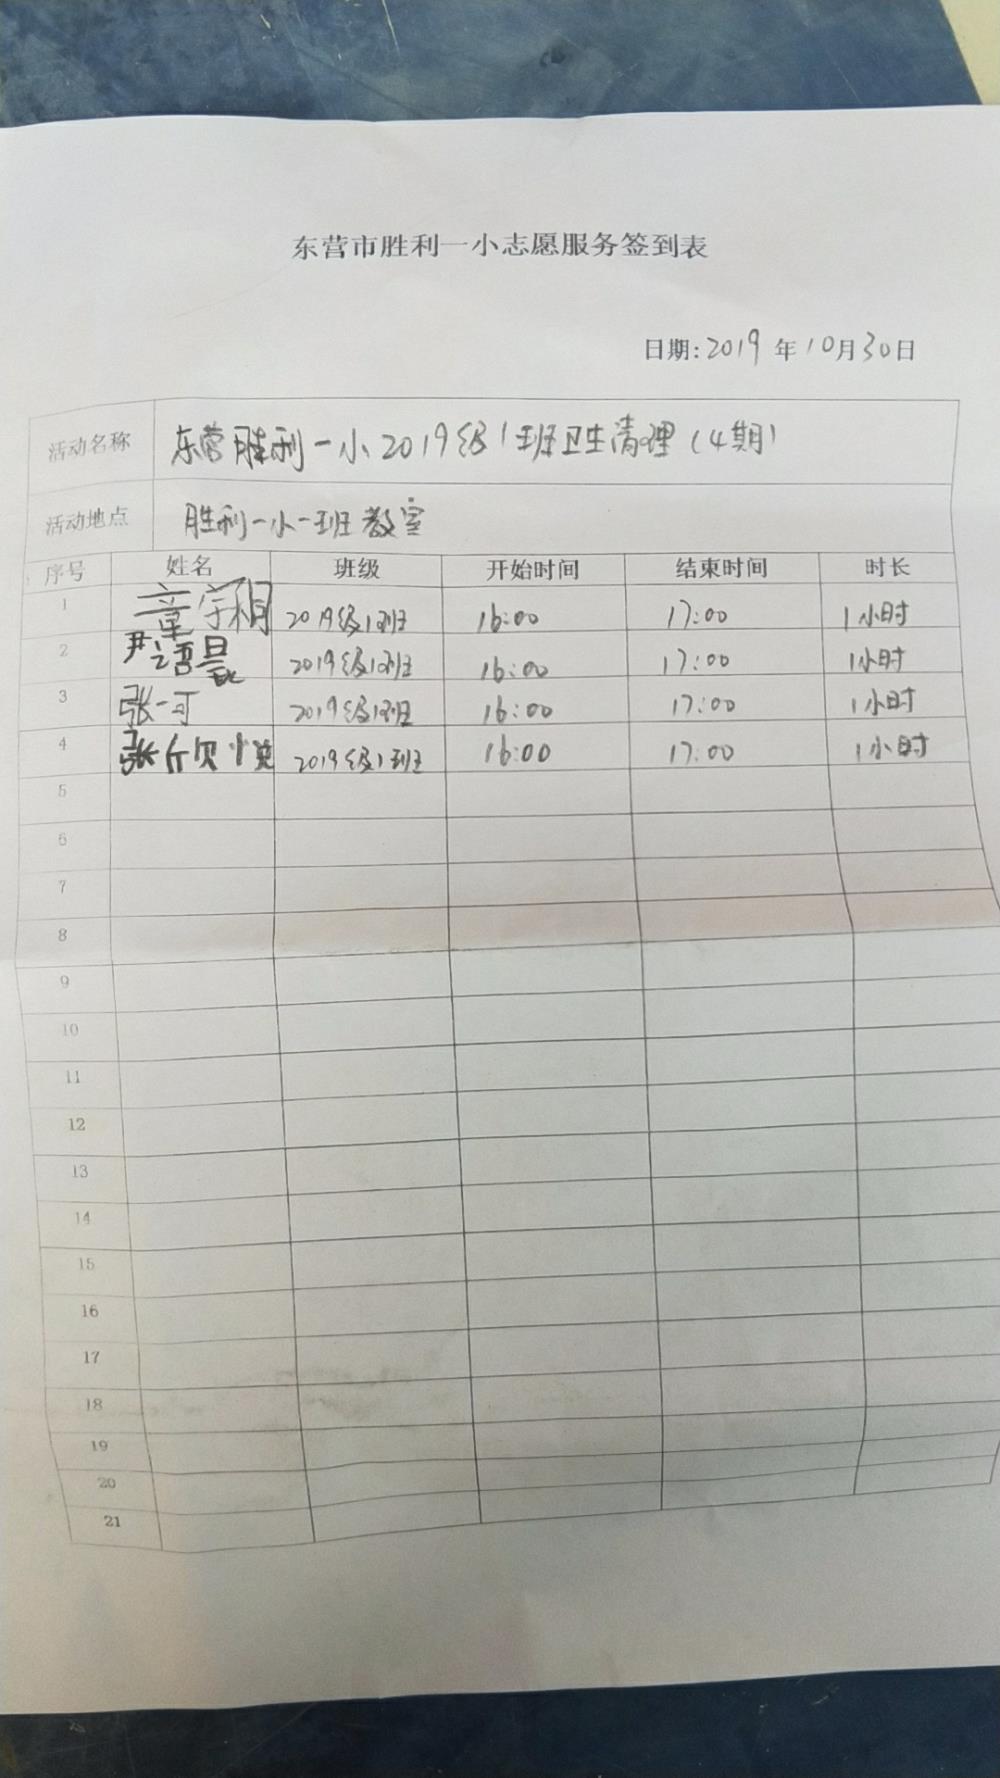 东营市胜利一小志愿服务签到表
日期:2019年10月30日
活动名称 东营胜利一小2019级1班卫生清理(4期)
活动地点 胜利一小一班教室
序号 姓名 班级 开始时间 结束时间 时长
1 童宇桐 2019级1班 16:00 17:00 1小时
2 尹语晨 2019级1班 16:00 17:00 1小时
3 张一可 2019级1班 16:00 17:00 1小时
4 张欣悦 2019级1班 16:00 17:00 1小时
5
6
7
8
9
10
11
12
13
14
15
16
17
18
19
20
21